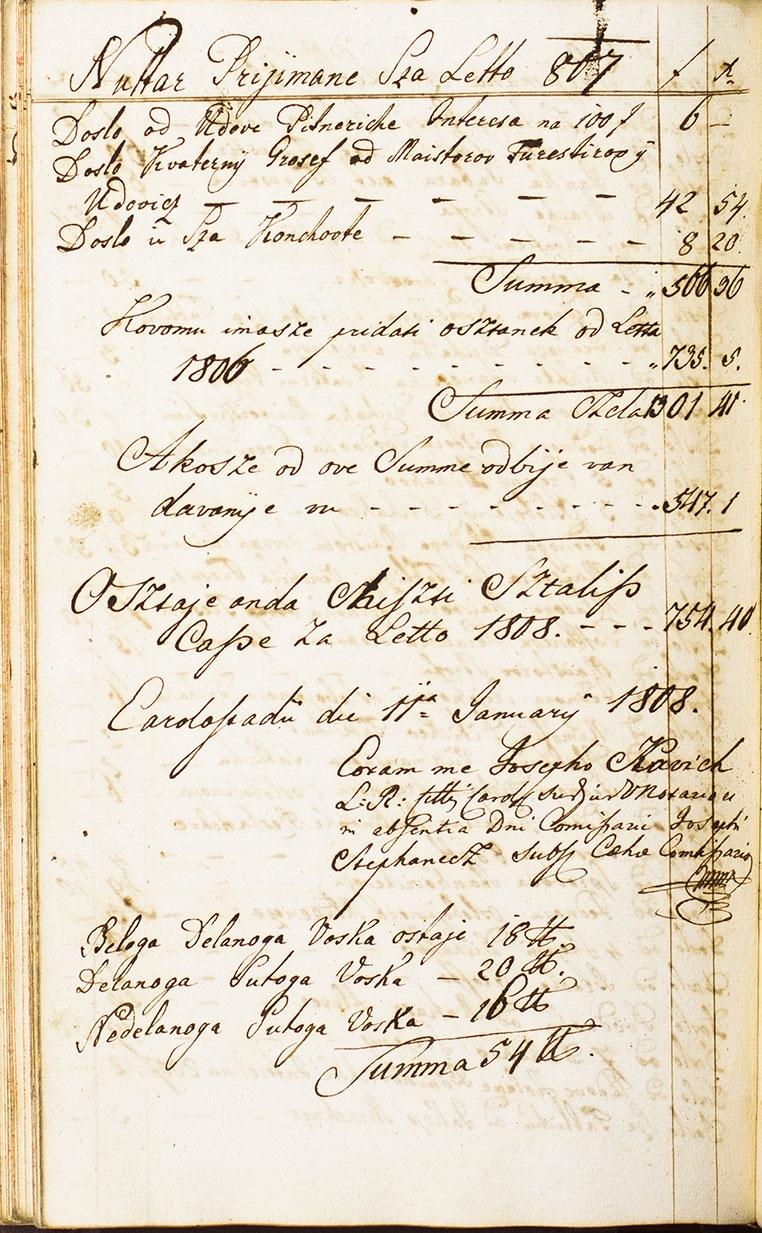 Nuttar Prijimane Sza Letto 807 f x
Doslo od Udove Pitneriche Interesa na 100 f 6 —
Doslo Kvaterny Grosef od Maistorov
Udovicz — — — — — — — 42 54.
Doslo u Sza Konchoote — — — — — — 8 20.
Summa - „ 566 36
Kovomu imasze pridati osztanek od Letta
1806 - - - - - - - - - „ 735. 5.
Summa Szela 1301 41.
Akosze od ove Summe odbije van
davanye vu - - - - - - - - . 547. 1
Osztaje anda Chiszti Sztaliss
Casse Za Letto 1808. - - - 754. 40.
Carolostadii die 11ma January 1808.
Coram me Josepho Kavich
L: R: Cttis Carolst
in absentia Dni Comissarii Josephi
Stephanecz subst Cehae Comissario
mppa
Beloga Delanoga Voska ostaje 18 ℔.
Delanoga Sutoga Voska — 20 ℔.
Nedelanoga Sutoga Voska — 16 ℔
Summa 54 ℔.